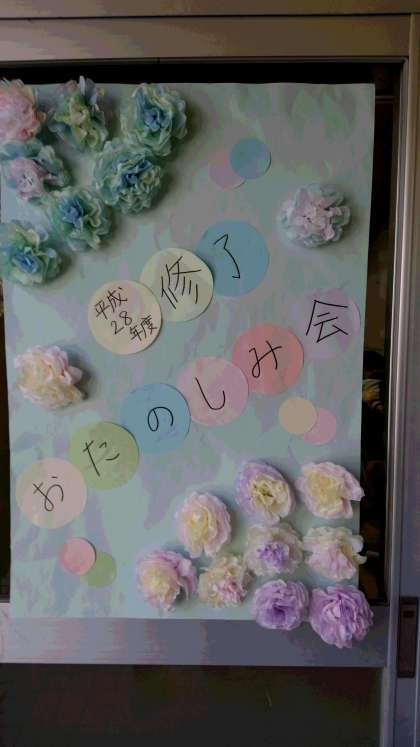 平成
28
年度
修了
おたのしみ会